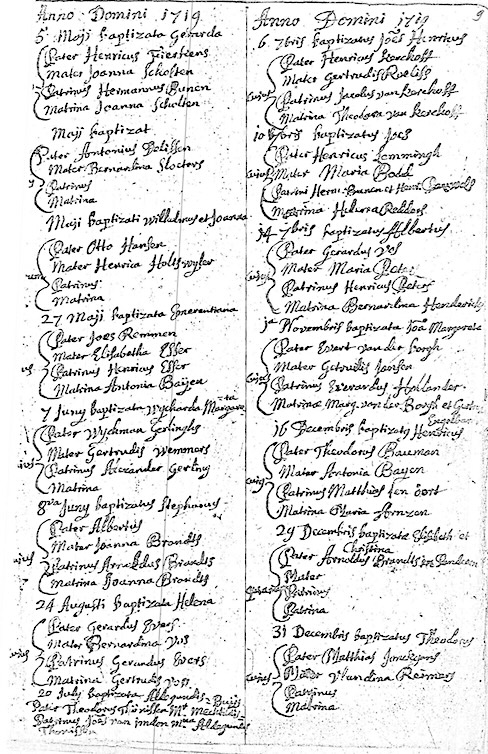 Anno Domini 1719
5 Maji baptizata Gerarda
Pater Henricus
Mater Joanna Scholten
Patrinus Hermannus Bunen
Matrina Joanna Scholten
Maji baptizat
Pater Antonius Delissen
Mater Bernardina Slooters
Patrinus
Matrina
Maji baptizati Wilhelmus et Joanna
Pater Otto Hansen
Mater Henrica Holtswyler
Patrinus
Matrina
27 Maji baptizata Emerentiana
Pater Joes Remmen
Mater Elisabetha Esser
Patrinus Henricus Esser
Matrina Antonia Baijen
7 Juny baptizata Wycharda Margareta
Pater Wyckman Gerlinghs
Mater Gertrudis Wemmers
Patrinus Alexander Gerling
Matrina
8va Juny baptizatus Stephanus
Pater Albertus
Mater Joanna Brandts
Patrinus Arnoldus Brandts
Matrina Joanna Brandts
24 Augusti baptizata Helena
Pater Gerardus Evers
Mater Bernardina Vos
Patrinus Gerardus Evers
Matrina Gertrudis Vos
20 July baptizata Aldegundis
Pater Theodorus Thönissen Mr Mechtildis Buijs
Patrinus Joës van Aldegundis
Thonissen
Anno Domini 1719
9
6 7bris baptizatus Joës Henricus
Pater Henricus Kerckhoff
Mater Gertrudis
Patrinus Jacobus van Kerckhoff
Matrina Theodora van Kerckhoff
10 baptizatus Joës
Pater Henricus Lemmingh
Mater Maria Bodd
Patrini Herm: Bunen et Henr:
Matrina Helena Redders
14 7bris baptizatus Albertus
Pater Gerardus Vos
Mater Maria Peters
Patrinus Henricus Peters
Matrina Bernardina Henderichs
1a Novembris baptizata Joa Margareta
Pater Evert van der Borgh
Mater Getrudis Jansen
Patrinus Everardus Hollander
Matrinae Marg. van der Borgh et
Engelbar
16 Decembris baptizatus Henricus
Pater Theodorus Bauman
Mater Antonia Bayen
Patrinus Matthias ten Oort
Matrina Maria Arnzen
29 Decembris baptizatae Elisabeth et
Christina
Pater Arnoldus Brandts
Mater
Patrinus
Patrina
31 Decembris baptizatus Theodorus
Pater Matthias
Mater Reiners
Patrinus
Matrina